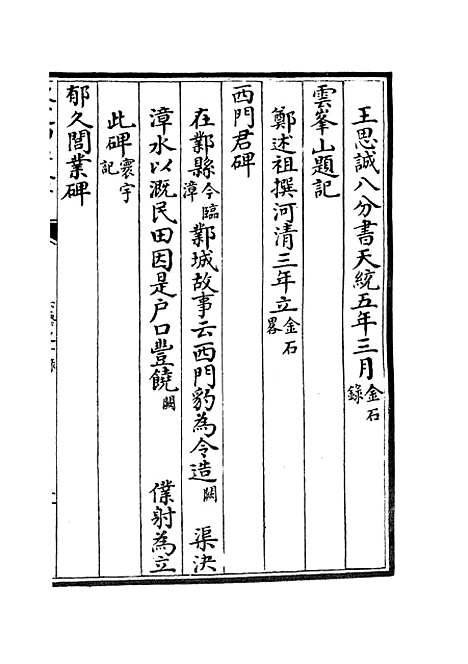 王思誠八分書天統五年三月金石錄
雲峯山題記
鄭述祖撰河清三年立金石畧
西門君碑
在鄴縣今臨漳鄴城故事云西門豹為令造闕 渠決
漳水以溉民田因是戶口豐饒闕 僕射為立
此碑寰宇記
郁久閭業碑